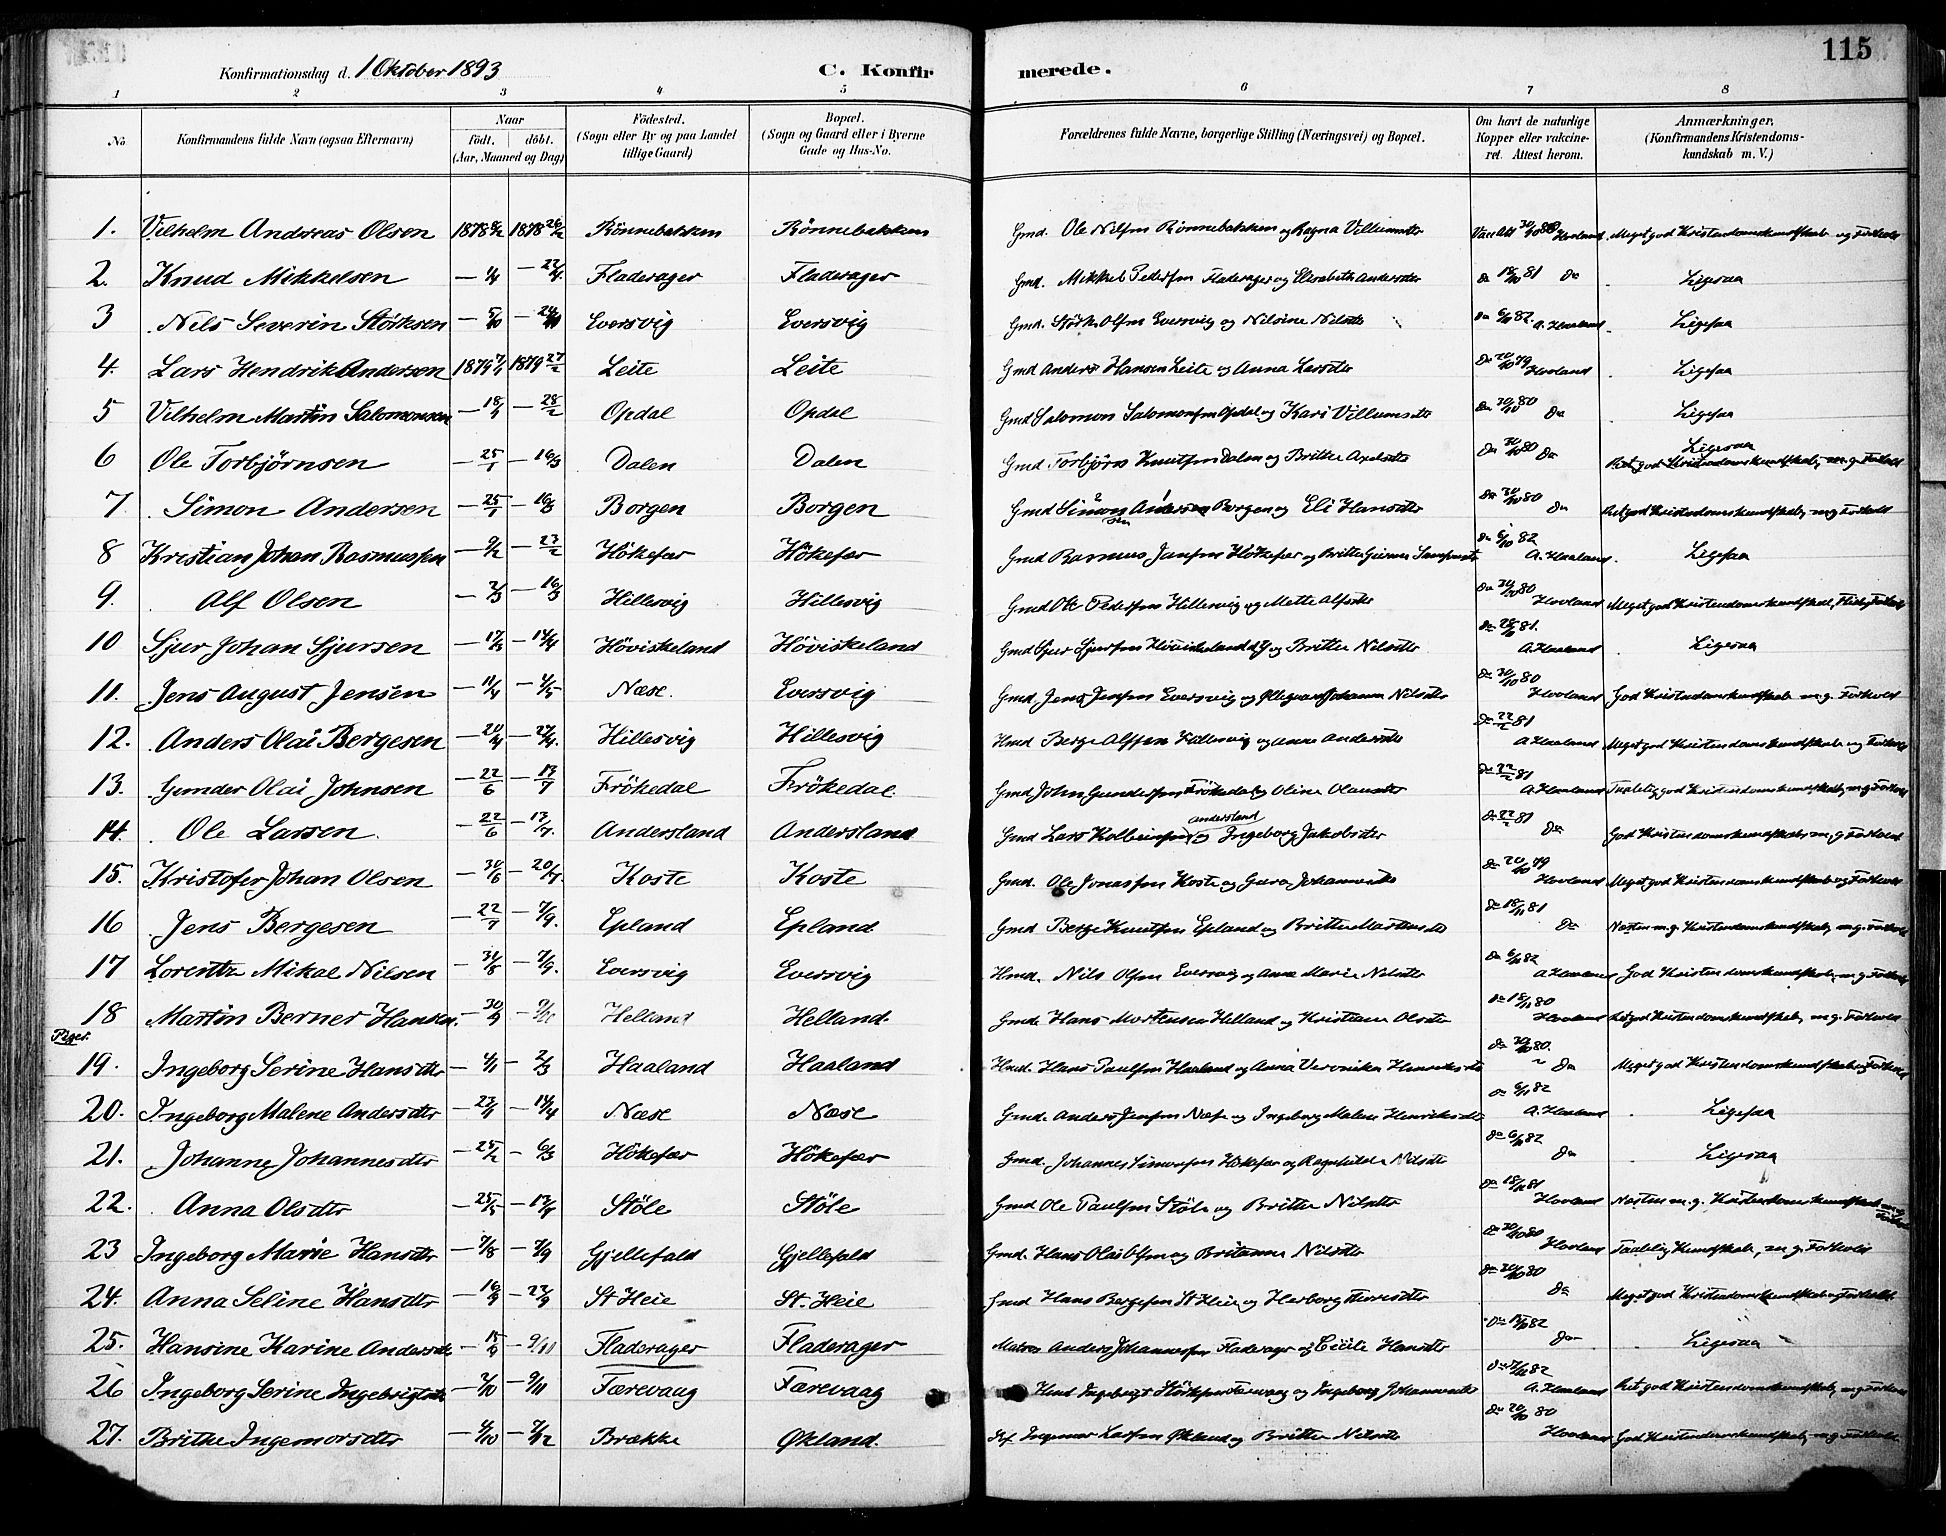 115
Konfirmationsdag d. 1 Oktober 1893 C. Konfirmerede.
1 2 3 4 5 6 7 8
No. Konfirmandens fulde Navn (ogsaa Efternavn) Naar födt. döbt. (Aar, Maaned og Dag) Födested. (Sogn eller By og paa Landet tillige Gaard) Bopæl. (Sogn og Gaard eller i Byerne Gade og Hus-No. Forældrenes fulde Navne, borgerlige Stilling (Næringsvei) og Bopæl. Om havt de naturlige Kopper eller vakcineret. Attest herom. Anmærkninger. (Konfirmandens Kristendomskundskab m. V.)
1. Vilhelm Andreas Olsen 1878 1878 Rönnebakken Rönnebakken Gmd. Ole Nilsen Rönnebakken og Ragna Hovland Meget god Kristendomskundskab og Forhold
2. Knud Mikkelsen Fladerager Fladerager Gmd. Mikkel Pedersen Fladerager og Elisabeth Andersdtr do 81 do Ligesaa
3 Nils Severin Störksen Eversvig Eversvig Gmd. Störk Olsen Eversvig og Nilsine Nilsdtr do 82 A. Haaland Ligesaa
4. Lars Hendrik Andersen 1879 1879 27/2 Leite Leite Gmd Anders Hansen Leite og Anna Larsdtr do 20/10 79 Hovland Ligesaa
5 Vilhelm Martin Salomonsen — 18/1 — 28/2 Opdal Opdal Gmd Salomon Salomonsen Opdal og Kari Villumsdtr do 30/10 80 do Ligesaa
6 Ole Torbjörnsen — 25/1 — 16/3 Dalen Dalen Gmd Torbjörn Knutsen Dalen og Britte Axelsdtr do 30/10 80 do Ligesaa
Ret god Kristendomskundskab, m. g. Forhold
7 Simon Andersen — 25/1 — 16/3 Borgen Borgen Gmd Simon Andersen Borgen og Eli Hansdtr do 30/10 80 do Ret god Kristendomskundskab, m g Forhold
8 Kristian Johan Rasmussen — 9/2 — 23/2 Hökefær Hökefær Gmd Rasmus Jansen Hökefær og Britte do 6/10 82 A. Haaland Ligesaa
9. Alf Olsen — 16/3 Hillesvig Hillesvig Gmd Ole Pedersen Hillesvig og Mette Alfsdtr do 30/10 80 Hovland Meget god Kristendomskundskab, Forhold
10 Sjur Johan Sjursen — 14/4 Höviskeland Höviskeland Gmd Sjur Sjursen Höviskeland og Britte Nilsdtr do 81. A. Haaland Ligesaa
11. Jens August Jensen — 11/4 — 4/5 Næse. Eversvig Gmd. Jens Jensen Eversvig og Johanna Nilsdtr do 30/10 80 Hovland God Kristendomskundskab m. g. Forhold
12. Anders Olai Bergesen — 20/4 Hillesvig Hillesvig Hmd Berge Alfsen Hillesvig og Anna Andersdtr do 22/2 81 A Haaland Meget god Kristendomskundskab og Forhold
13. Gunder Olai Johnsen — 22/6 — 13/7 Frökedal Frökedal Gmd John Gundersen Frökedal og Oline Olausdtr do 22/2 81 A. Haaland Taalelig god Kristendomskundskab, m. g. Forhold
14. Ole Larsen. — 22/6 — 13/7. Andersland Andersland Gmd Lars Kolbeinsen Andersland og Ingeborg Jakobsdtr do 22/2 81 do God Kristendomskundskab, m, g Forhold
15. Kristofer Johan Olsen — 30/6 — 20/7. Koste Koste Gmd. Ole Jonassen Koste og Guro Johannesdtr do 20/10 79 Hovland Meget god Kristendomskundskab og Forhold
16 Jens Bergesen — 22/7 — 7/9. Epland Epland Gmd Berge Knutsen Epland og Britte do 18/11 81 do Næsten m. g. Kristendomskundskab, m. g. Forhold
17 Lorentz Mikal Nilsen — 7/9. Eversvig Eversvig Hmd. Nils Olsen Eversvig og Anna Marie Nilsdtr do 6/10 82 A Haaland God Kristendomskundskab, m. g. Forhold
18 Martin Berner Hansen. — 30/9 Helland Helland. Gmd. Hans Mortensen Helland og Kristiane Olsdtr do 18/11 80 Hovland Ret god Kristendomskundskab, m. g. Forhold
Piger.
19. Ingeborg Serine Hansdtr — 4/1 — 2/3 Haaland Haaland Hmd. Hans Paulsen Haaland og Anna Veronika Henriksdtr do 30/10 80. do Meget god Kristendomskundskab og Forhold
20. Ingeborg Malene Andersdtr — 14/4 Næse Næse Gmd. Anders Jensen Næse og Ingeborg Malene Henriksdtr do 82 A. Haaland Ligesaa
21. Johanne Johannesdtr — 25/2 — 6/3 Hökefær Hökefær Gmd. Johannes Simonsen Hökefær og Ragnhilda Nilsdtr do 82 do Ligesaa
22. Anna Olsdtr — 25/5 Stöle Stöle Gmd Ole Paulsen Stöle og Britte Nilsdtr do 81 Hovland Næsten m. g. Kristendomskundskab m. g. Forhold
23 Ingeborg Marie Hansdtr — 7/8 — 7/9 Gjellefald Gjellefald Gmd. Hans Olai Olsen og Britanna Nilsdtr do 30/10 80 Hovland Taalelig Kundskab, m. g. Forhold
24. Anna Seline Hansdtr — 16/9 St Heie St. Heie Gmd Hans Bergesen St Heie og Herborg do 30/10 80 do Meget god Kristendomskundskab og Forhold
25. Hansine Karine Andersdtr — 15/9 — 9/11 Fladerager Fladerager Matros Anders Johannessen Fladerager og Cecilie Hansdtr do 82 do Ligesaa
26 Ingeborg Serine Ingebrigtsdtr — 9/11 Færevaag Færevaag Hmd Ingebrigt Störksen Færevaag og Ingeborg Johannesdtr do 82 A. Haaland Ret god Kristendomskundskab, m. g. Forhold
27. Brithe Ingemorsdtr — 4/10 — 7/12 Brække Økland. Ingemor Larsen Økland og Britte Nilsdtr do 20/10 80 Hovland God Kristendomskundskab, m g. Forhold